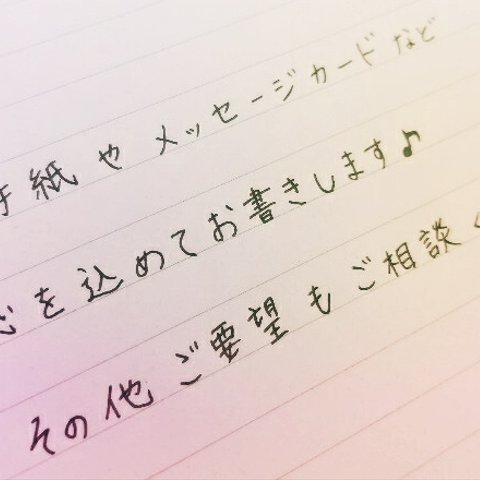 手紙や メッセージカードなど
心を込めてお書きします♪
その他 ご要望もご相談く